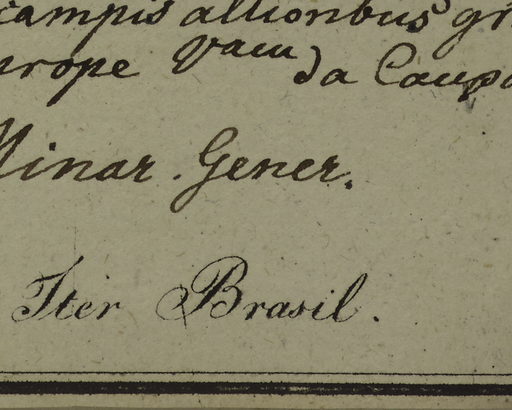 campis altioribus
prope Vau da Caupa
Minar. Gener.
Iter Brasil.